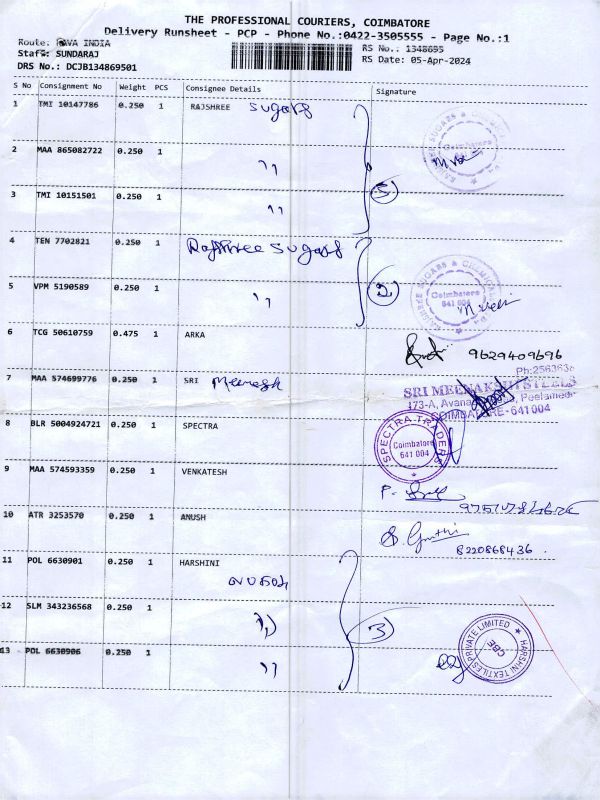 THE PROFESSIONAL COURIERS, COIMBATORE
Delivery Runsheet - PCP - Phone No.:0422-3505555 - Page No.:1
Route: PAVA INDIA
RS No.: 1348695
Staff: SUNDARAJ
RS Date: 05-Apr-2024
DRS No.: DCJB134869501
S No Consignment No Weight PCS Consignee Details Signature
1 TMI 10147786 0.250 1 RAJSHREE sugars
2 MAA 865082722 0.250 1 ,,
3 TMI 10151501 0.250 1 ,,
3
4 TEN 7702821 0.250 1 Rajshree sugars
5 VPM 5190589 0.250 1 ,,
2
Coimbatore
641 004
6 TCG 50610759 0.475 1 ARKA
9629409696
7 MAA 574699776 0.250 1 SRI
Ph:2563636
SRI MEENAKSHI STEELS
173-A, Peelamedu
COIMBATORE-641004
8 BLR 5004924721 0.250 1 SPECTRA
SPECTRA TRADERS
Coimbatore
641 004
9 MAA 574593359 0.250 1 VENKATESH
10 ATR 3253570 0.250 1 ANUSH
8220868436
11 POL 6630901 0.250 1 HARSHINI
12 SLM 343236568 0.250 1 ,,
3
13 POL 6630906 0.250 1 ,,
HARSHINI TEXTILES PRIVATE LIMITED
CBE